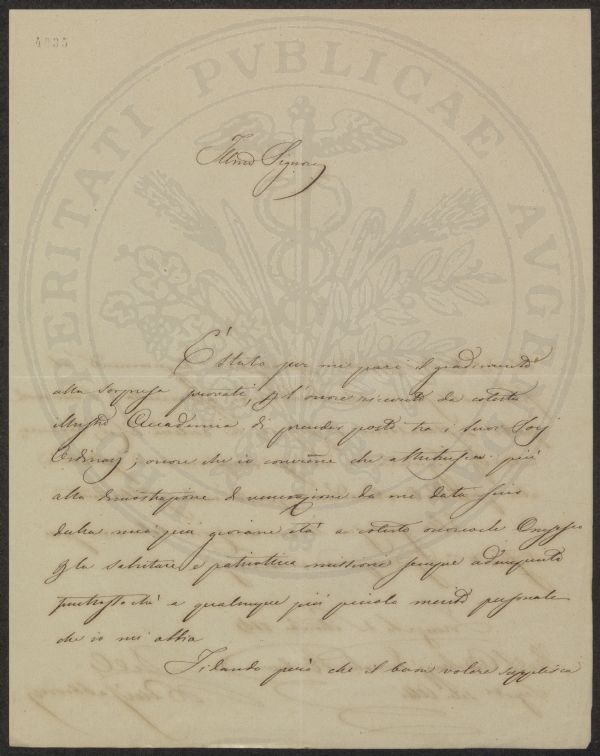 4035
PROSPERITATI PVBLICAE AVGENDAE
Illmo Signore
È stato per me pari il gradimento
alla sorpresa provati, per l'onore ricevuto da cotesta
illustre Accademia di prender posto tra i suoi Socj
Ordinarj; onore che io conviene che attribuisca più
alla dimostrazione di venerazione da me data fino
dalla mia più giovane età a cotesto onorevole Consesso
per la salutare e patriottica missione sempre adempiuta
piuttosto chè a qualunque più piccolo merito personale
che io mi abbia
Fidando però che il buon volere supplisca